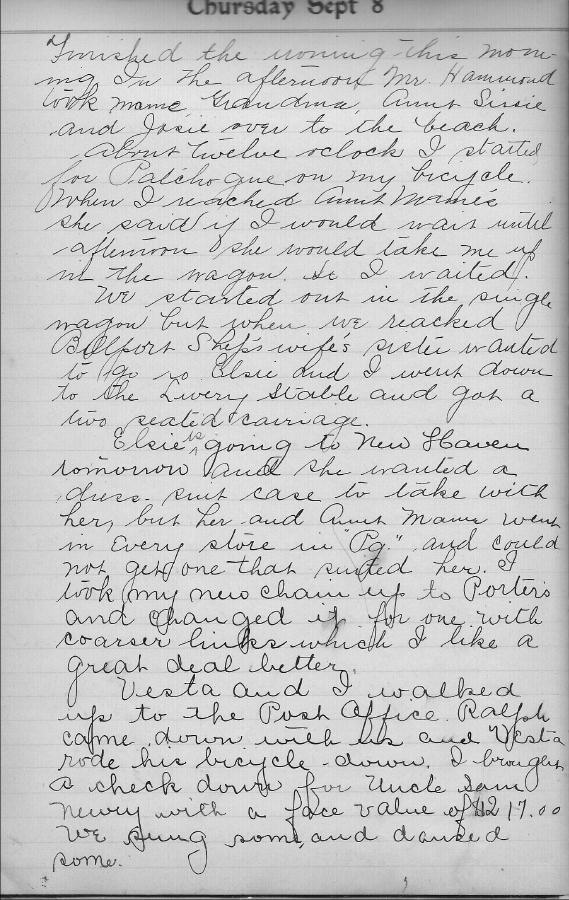 Thursday Sept 8
Finished the ironing this morn-
ing. In the afternoon Mr. Hammond
took mame, Grandma, Aunt Susie
and Josie over to the beach.
About twelve oclock I started
for Patchogue on my bicycle.
When I reached Aunt Mame's
she said if I would wait until
afternoon she would take me up
in the wagon. So I waited.
We started out in the single
wagon but when we reached
Bellport Shep's wife's sister wanted
to go so Elsie and I went down
to the Livery Stable and got a
two seated carriage.
Elsie is going to New Haven
tomorrow and she wanted a
dress-suit case to take with
her, but her and Aunt Mame went
in Every store in "Pg." and could
not get one that suited her. I
took my new chain up to Porter's
and changed it for one with
coarser links which I like a
great deal better.
Vesta and I walked
up to the Post Office. Ralph
came down with us and Vesta
rode his bicycle down. I brought
a check down for Uncle Sam
Newry with a face value of $217.00
We sung some, and danced
some.